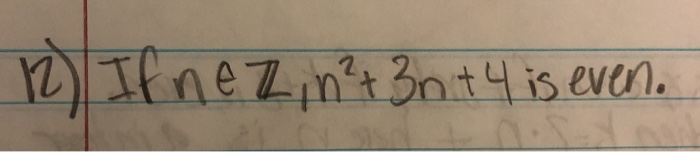 12) If n ∈ ℤ, n² + 3n + 4 is even.